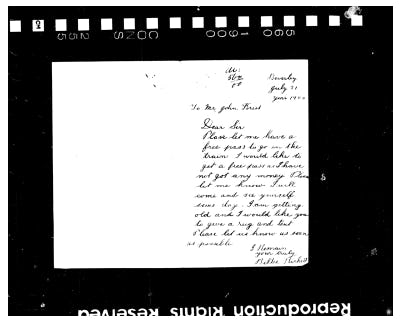 560 190 CONS 255
Beverley
July 31
year 19
To Mr John
Dear Sir
Please let me have a
free pass to go on the
train I would like to
get a free pass as I have
not got any money Please
let me know I will
come and see yourself
some day. I am getting
old and I would like you
to give a rug and tent
Please let us know as soon
as possible
I Remain
your truly
Billie
Reproduction Rights Reserved